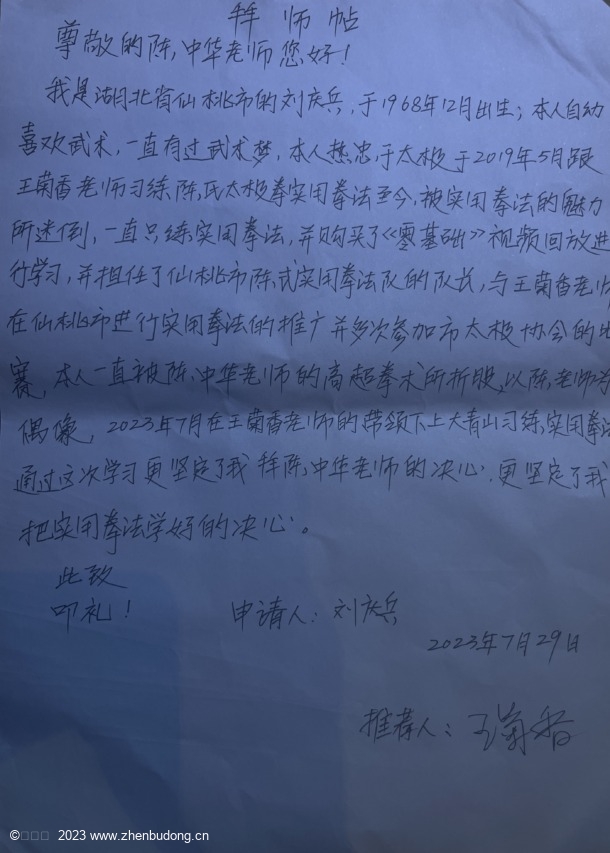 拜师帖
尊敬的陈中华老师您好!
我是湖北省仙桃市的刘庆兵,于1968年12月出生;本人自幼
喜欢武术,一直有过武术梦,本人热忠于太极于2019年5月跟
王菊香老师习练陈氏太极拳实用拳法至今,被实用拳法的魅力
所迷倒,一直只练实用拳法,并购买了《零基础》视频回放进
行学习,并担任了仙桃市陈式实用拳法队的队长,与王菊香老师
在仙桃市进行实用拳法的推广并多次参加市太极协会的比
赛,本人一直被陈中华老师的高超拳术所折服,以陈老师为
偶像,2023年7月在王菊香老师的带领下上大青山习练实用拳法
通过这次学习更坚定了我拜陈中华老师的决心,更坚定了我
把实用拳法学好的决心。
此致
叩礼!
申请人:刘庆兵
2023年7月29日
推荐人:王菊香
© 2023 www.zhenbudong.cn